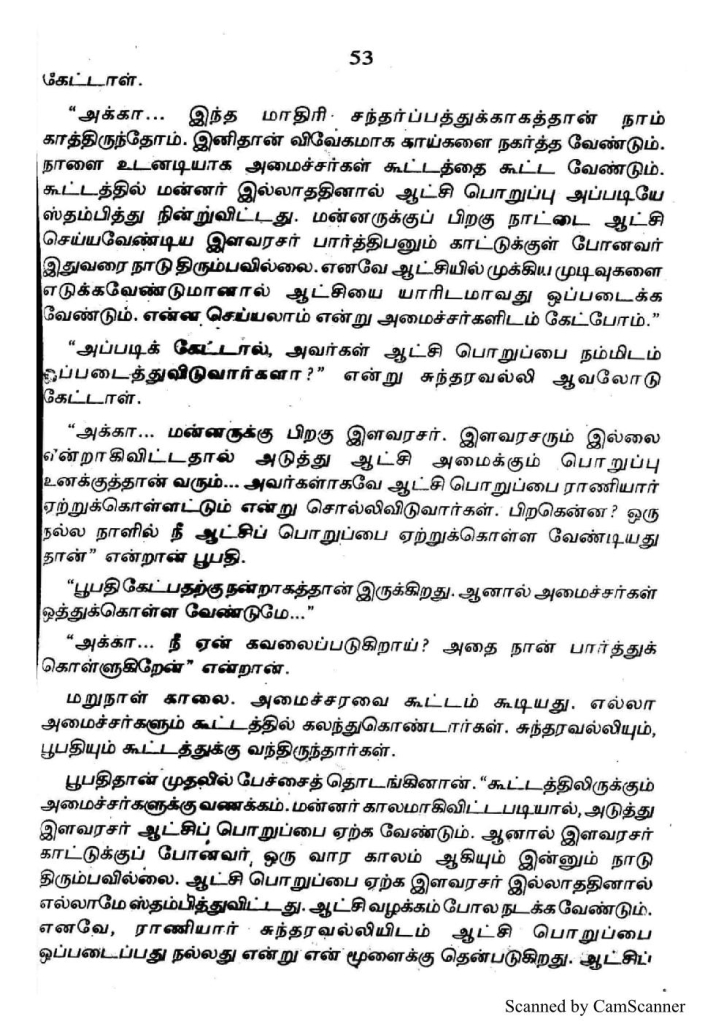 53
கேட்டாள்.
“அக்கா... இந்த மாதிரி சந்தர்ப்பத்துக்காகத்தான் நாம்
காத்திருந்தோம். இனிதான் விவேகமாக காய்களை நகர்த்த வேண்டும்.
நாளை உடனடியாக அமைச்சர்கள் கூட்டத்தை கூட்ட வேண்டும்.
கூட்டத்தில் மன்னர் இல்லாததினால் ஆட்சி பொறுப்பு அப்படியே
ஸ்தம்பித்து நின்றுவிட்டது. மன்னருக்குப் பிறகு நாட்டை ஆட்சி
செய்யவேண்டிய இளவரசர் பார்த்திபனும் காட்டுக்குள் போனவர்
இதுவரை நாடு திரும்பவில்லை. எனவே ஆட்சியில் முக்கிய முடிவுகளை
எடுக்கவேண்டுமானால் ஆட்சியை யாரிடமாவது ஒப்படைக்க
வேண்டும். என்ன செய்யலாம் என்று அமைச்சர்களிடம் கேட்போம்.”
“அப்படிக் கேட்டால், அவர்கள் ஆட்சி பொறுப்பை நம்மிடம்
ஒப்படைத்துவிடுவார்களா?” என்று சுந்தரவல்லி ஆவலோடு
கேட்டாள்.
“அக்கா... மன்னருக்கு பிறகு இளவரசர். இளவரசரும் இல்லை
என்றாகிவிட்டதால் அடுத்து ஆட்சி அமைக்கும் பொறுப்பு
உனக்குத்தான் வரும்... அவர்களாகவே ஆட்சி பொறுப்பை ராணியார்
ஏற்றுக்கொள்ளட்டும் என்று சொல்லிவிடுவார்கள். பிறகென்ன? ஒரு
நல்ல நாளில் நீ ஆட்சிப் பொறுப்பை ஏற்றுக்கொள்ள வேண்டியது
தான்” என்றான் பூபதி.
“பூபதி கேட்பதற்கு நன்றாகத்தான் இருக்கிறது. ஆனால் அமைச்சர்கள்
ஒத்துக்கொள்ள வேண்டுமே...”
“அக்கா... நீ ஏன் கவலைப்படுகிறாய்? அதை நான் பார்த்துக்
கொள்ளுகிறேன்” என்றான்.
மறுநாள் காலை. அமைச்சரவை கூட்டம் கூடியது. எல்லா
அமைச்சர்களும் கூட்டத்தில் கலந்துகொண்டார்கள். சுந்தரவல்லியும்,
பூபதியும் கூட்டத்துக்கு வந்திருந்தார்கள்.
பூபதிதான் முதலில் பேச்சைத் தொடங்கினான். “கூட்டத்திலிருக்கும்
அமைச்சர்களுக்கு வணக்கம். மன்னர் காலமாகிவிட்டபடியால், அடுத்து
இளவரசர் ஆட்சிப் பொறுப்பை ஏற்க வேண்டும். ஆனால் இளவரசர்
காட்டுக்குப் போனவர், ஒரு வார காலம் ஆகியும் இன்னும் நாடு
திரும்பவில்லை. ஆட்சி பொறுப்பை ஏற்க இளவரசர் இல்லாததினால்
எல்லாமே ஸ்தம்பித்துவிட்டது. ஆட்சி வழக்கம் போல நடக்க வேண்டும்.
எனவே, ராணியார் சுந்தரவல்லியிடம் ஆட்சி பொறுப்பை
ஒப்படைப்பது நல்லது என்று என் மூளைக்கு தென்படுகிறது. ஆட்சிப்
Scanned by CamScanner